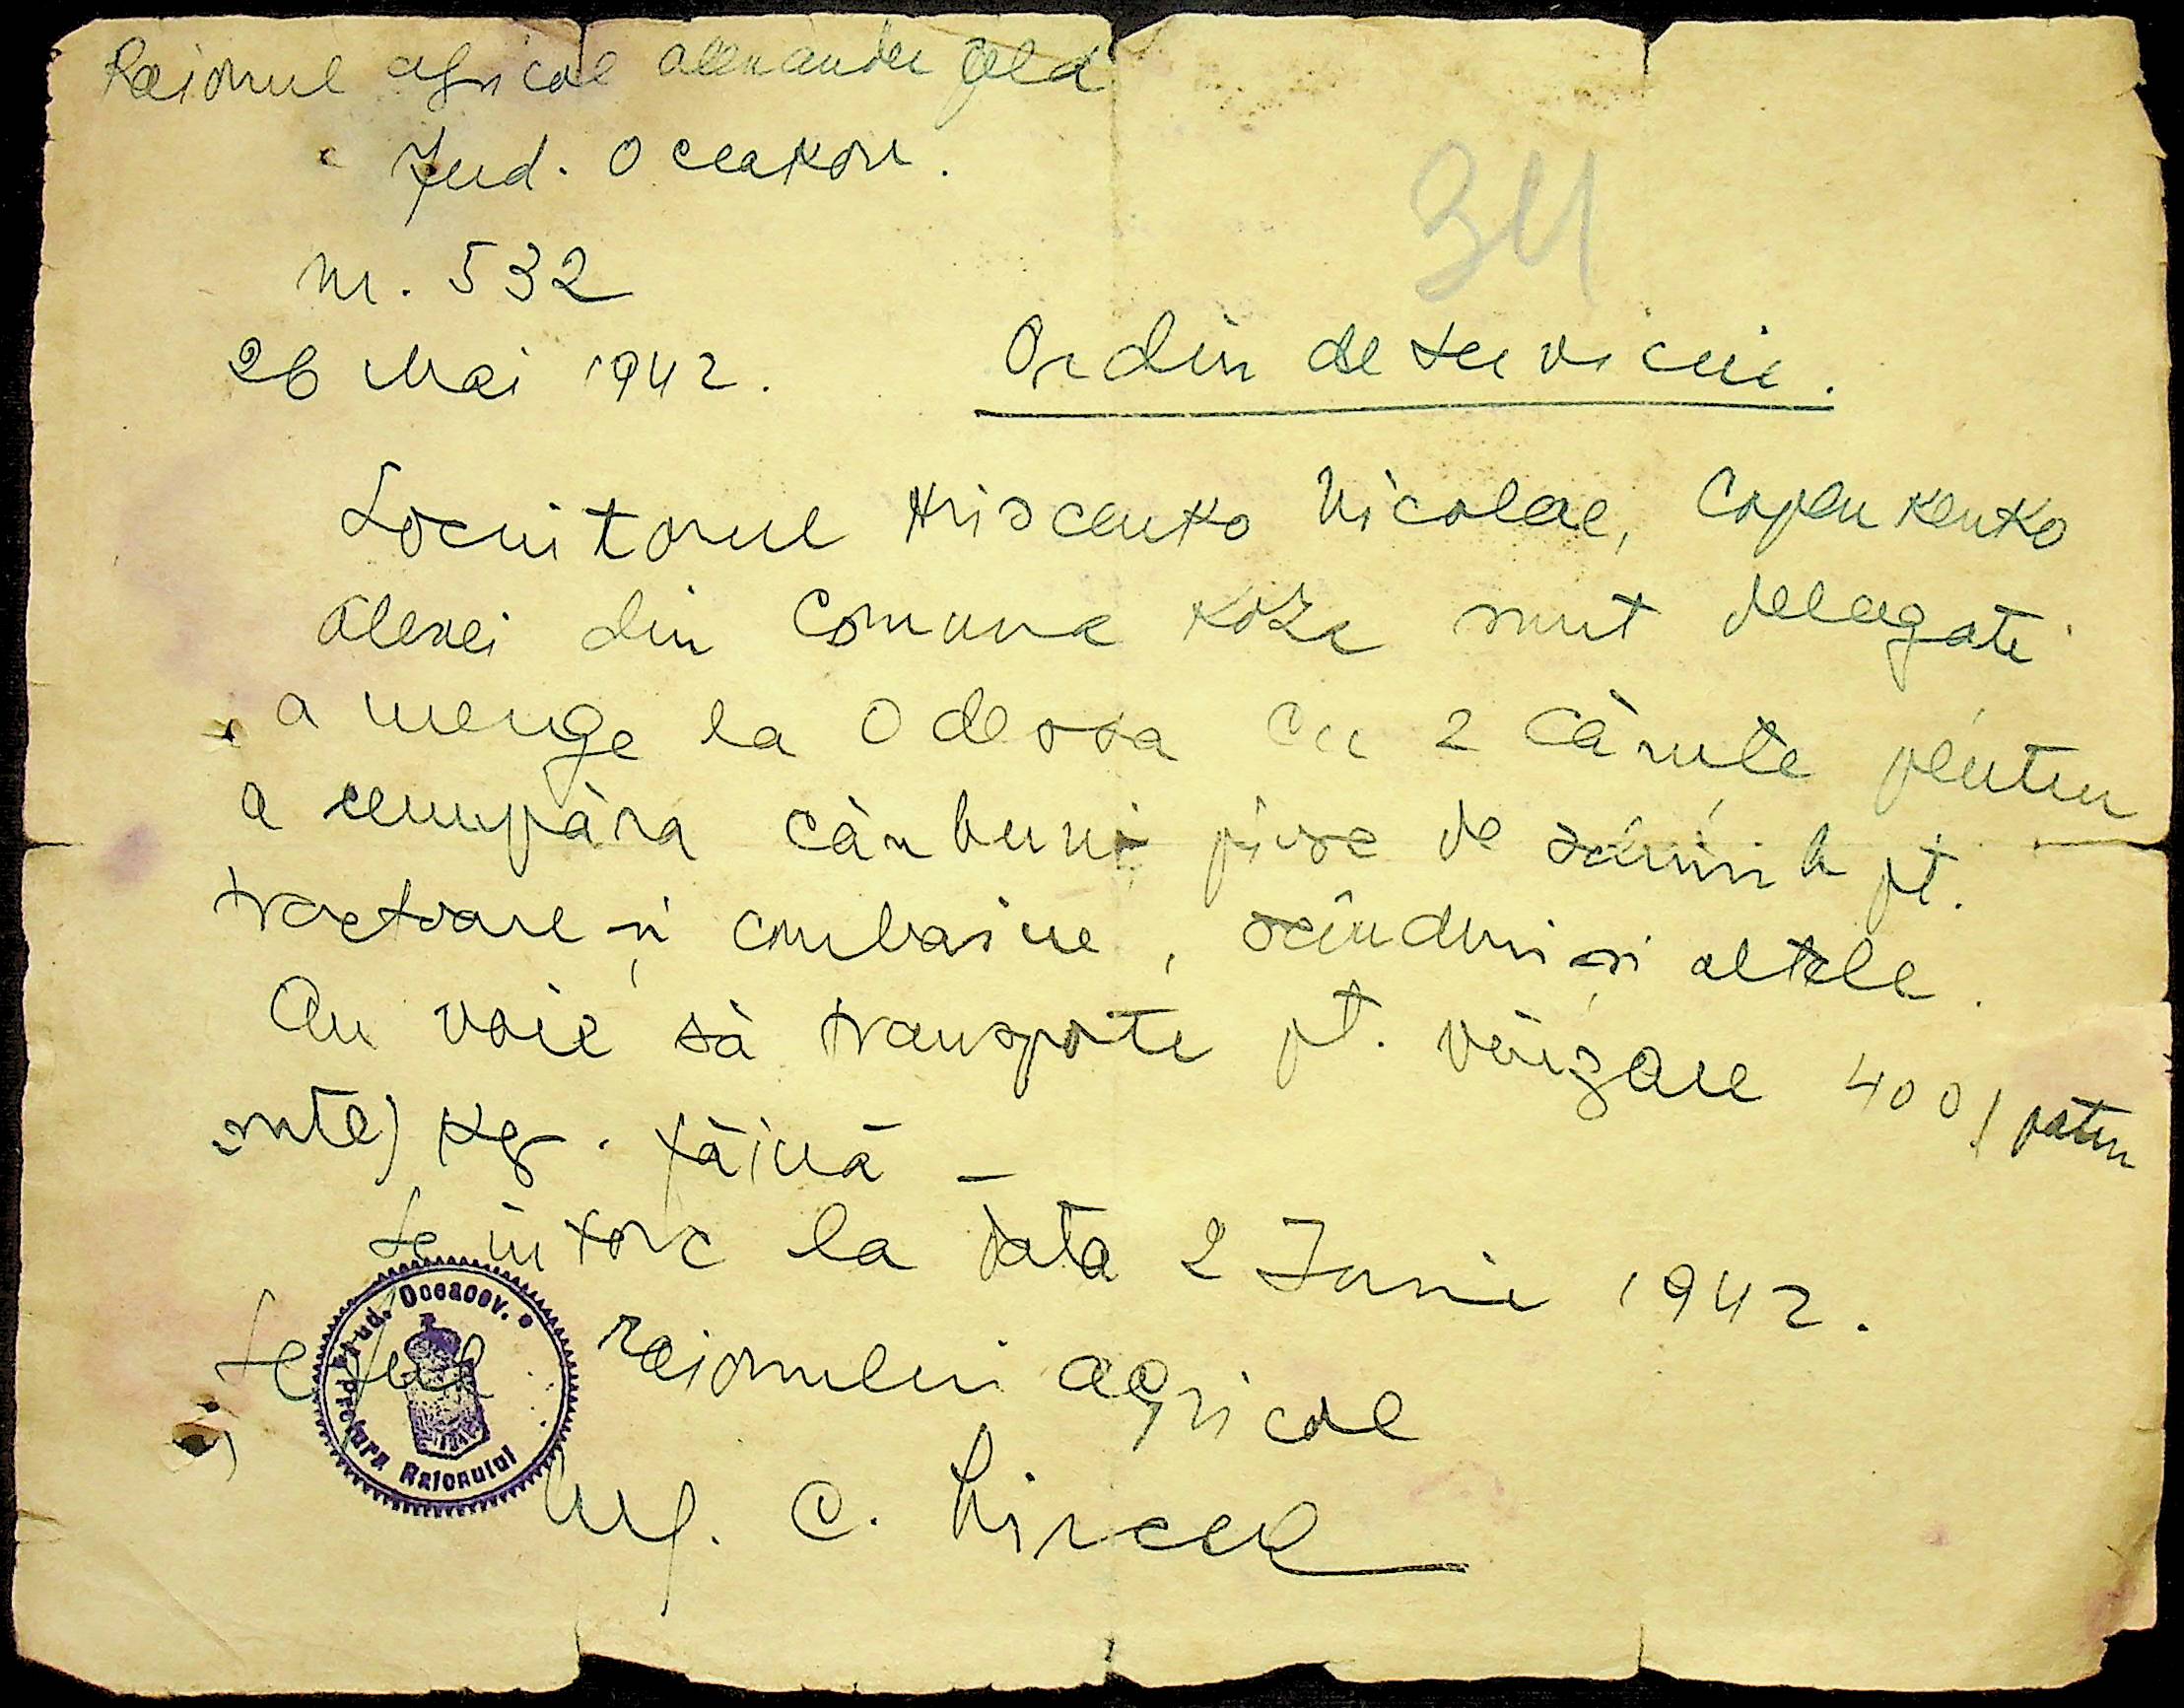 Raionul agricol Alexander feld
Jud. Oceakov.
34
nr. 532
26 Mai 1942.
Ordin de serviciu.
Locuitorul Hriscenko Nicolae,
Alexei din Comuna sunt delegati
a merge la Odessa cu 2 căruțe pentru
a cumpăra cărbuni piese de schimb pt.
tractoare și combaine, scînduri și altele.
Au voie să transporte pt. vînzare 400 / patru
sute) kg. făină -
Se intorc la data 2 Iunie 1942.
Șeful raionului agricol
Jud. Oceacov.
Pretura Raionului
Ing. C.